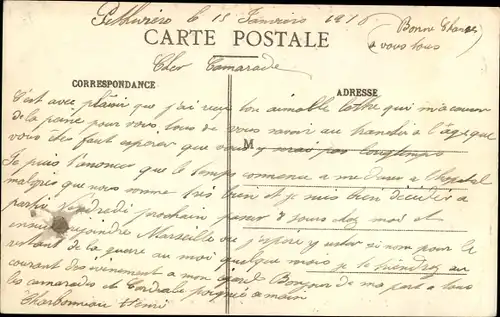 Pithiviers le 18 Janvier 1916
Bonne Chance
à vous tous
CARTE POSTALE
Cher Camarade
CORRESPONDANCE
ADRESSE
C'est avec plaisir que j'ai reçu ton aimable lettre qui m'a causé
de la peine pour vous tous de vous savoir au
vous êtes faut espérer que vous y serai pas longtemps
M
Je puis t'anoncer que le temps commence a me durer a l'hopital
malgrés que nous somme très bien et je suis bien décider a
partir Vendredi prochain passer 7 jours chez moi et
ensuite rejoindre Marseille ou j'espère y rester si non pour le
restant de la guerre au moi quelque mois je te tiendrez au
courant des évènement a mon égard Bonjour de ma part a tous
les camarades et Cordiale poignée a main
Charbonneau Henri